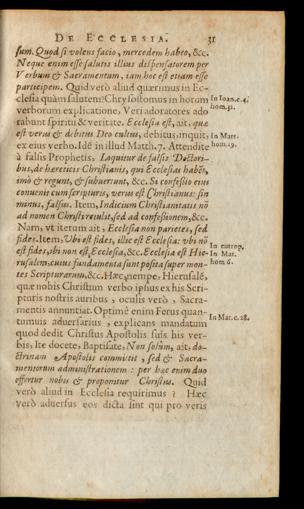 DE ECCLESIA. 31
sum. Quod si volens facio, mercedem habeo, &c.
Neque enim esse salutis illius dispensatorem per
Verbum & Sacramentum, iam hoc est etiam esse
participem. Quid verò aliud quærimus in Ec-
clesia quàm salutem? Chrysostomus in horum
verborum explicatione, Veri adoratores ado
rabunt spiritu & veritate. Ecclesia est, ait, quæ
est verus & debitus Deo cultus, debitus, inquit,
ex eius verbo. Idē in illud Matth. 7. Attendite
à falsis Prophetis, Loquitur de falsis Doctori-
bus, de hæreticis Christianis, qui Ecclesias habēt,
imò & regunt, & subuertunt, &c. Si confessio eius
conuenit cum scripturis, verus est Christianus: sin
minus, falsus. Item, Indicium Christianitatis nō
ad nomen Christi retulit, sed ad confessionem, &c.
Nam, vt iterum ait, Ecclesia non parietes, sed
fides. Item, Vbi est fides, illic est Ecclesia: vbi nō
est fides, ibi non est Ecclesia, &c. Ecclesia est Hie-
rusalem, cuius fundamenta sunt posita super mon-
tes Scripturarum, &c. Hæc, nempe, Hierusalē,
quę nobis Christum verbo ipsius ex his Scri-
pturis nostris auribus, oculis verò, Sacra-
mentis annuntiat. Optimè enim Ferus quan-
tumuis aduersarius, explicans mandatum
quod dedit Christus Apostolis suis his ver-
bis, Ite docete, Baptisate, Non solùm, ait, do-
ctrinam Apostolis committit, sed & Sacra-
mentorum administrationem: per hæc enim duo
offertur nobis & proponitur Christus. Quid
verò aliud in Ecclesia requirimus? Hæc
verò aduersus eos dicta sint qui pro veris
In Ioan. c. 4.
hom. 31.
In Matt.
hom. 19.
In eutrop.
In Mat.
hom 6.
In Mat. c. 28.